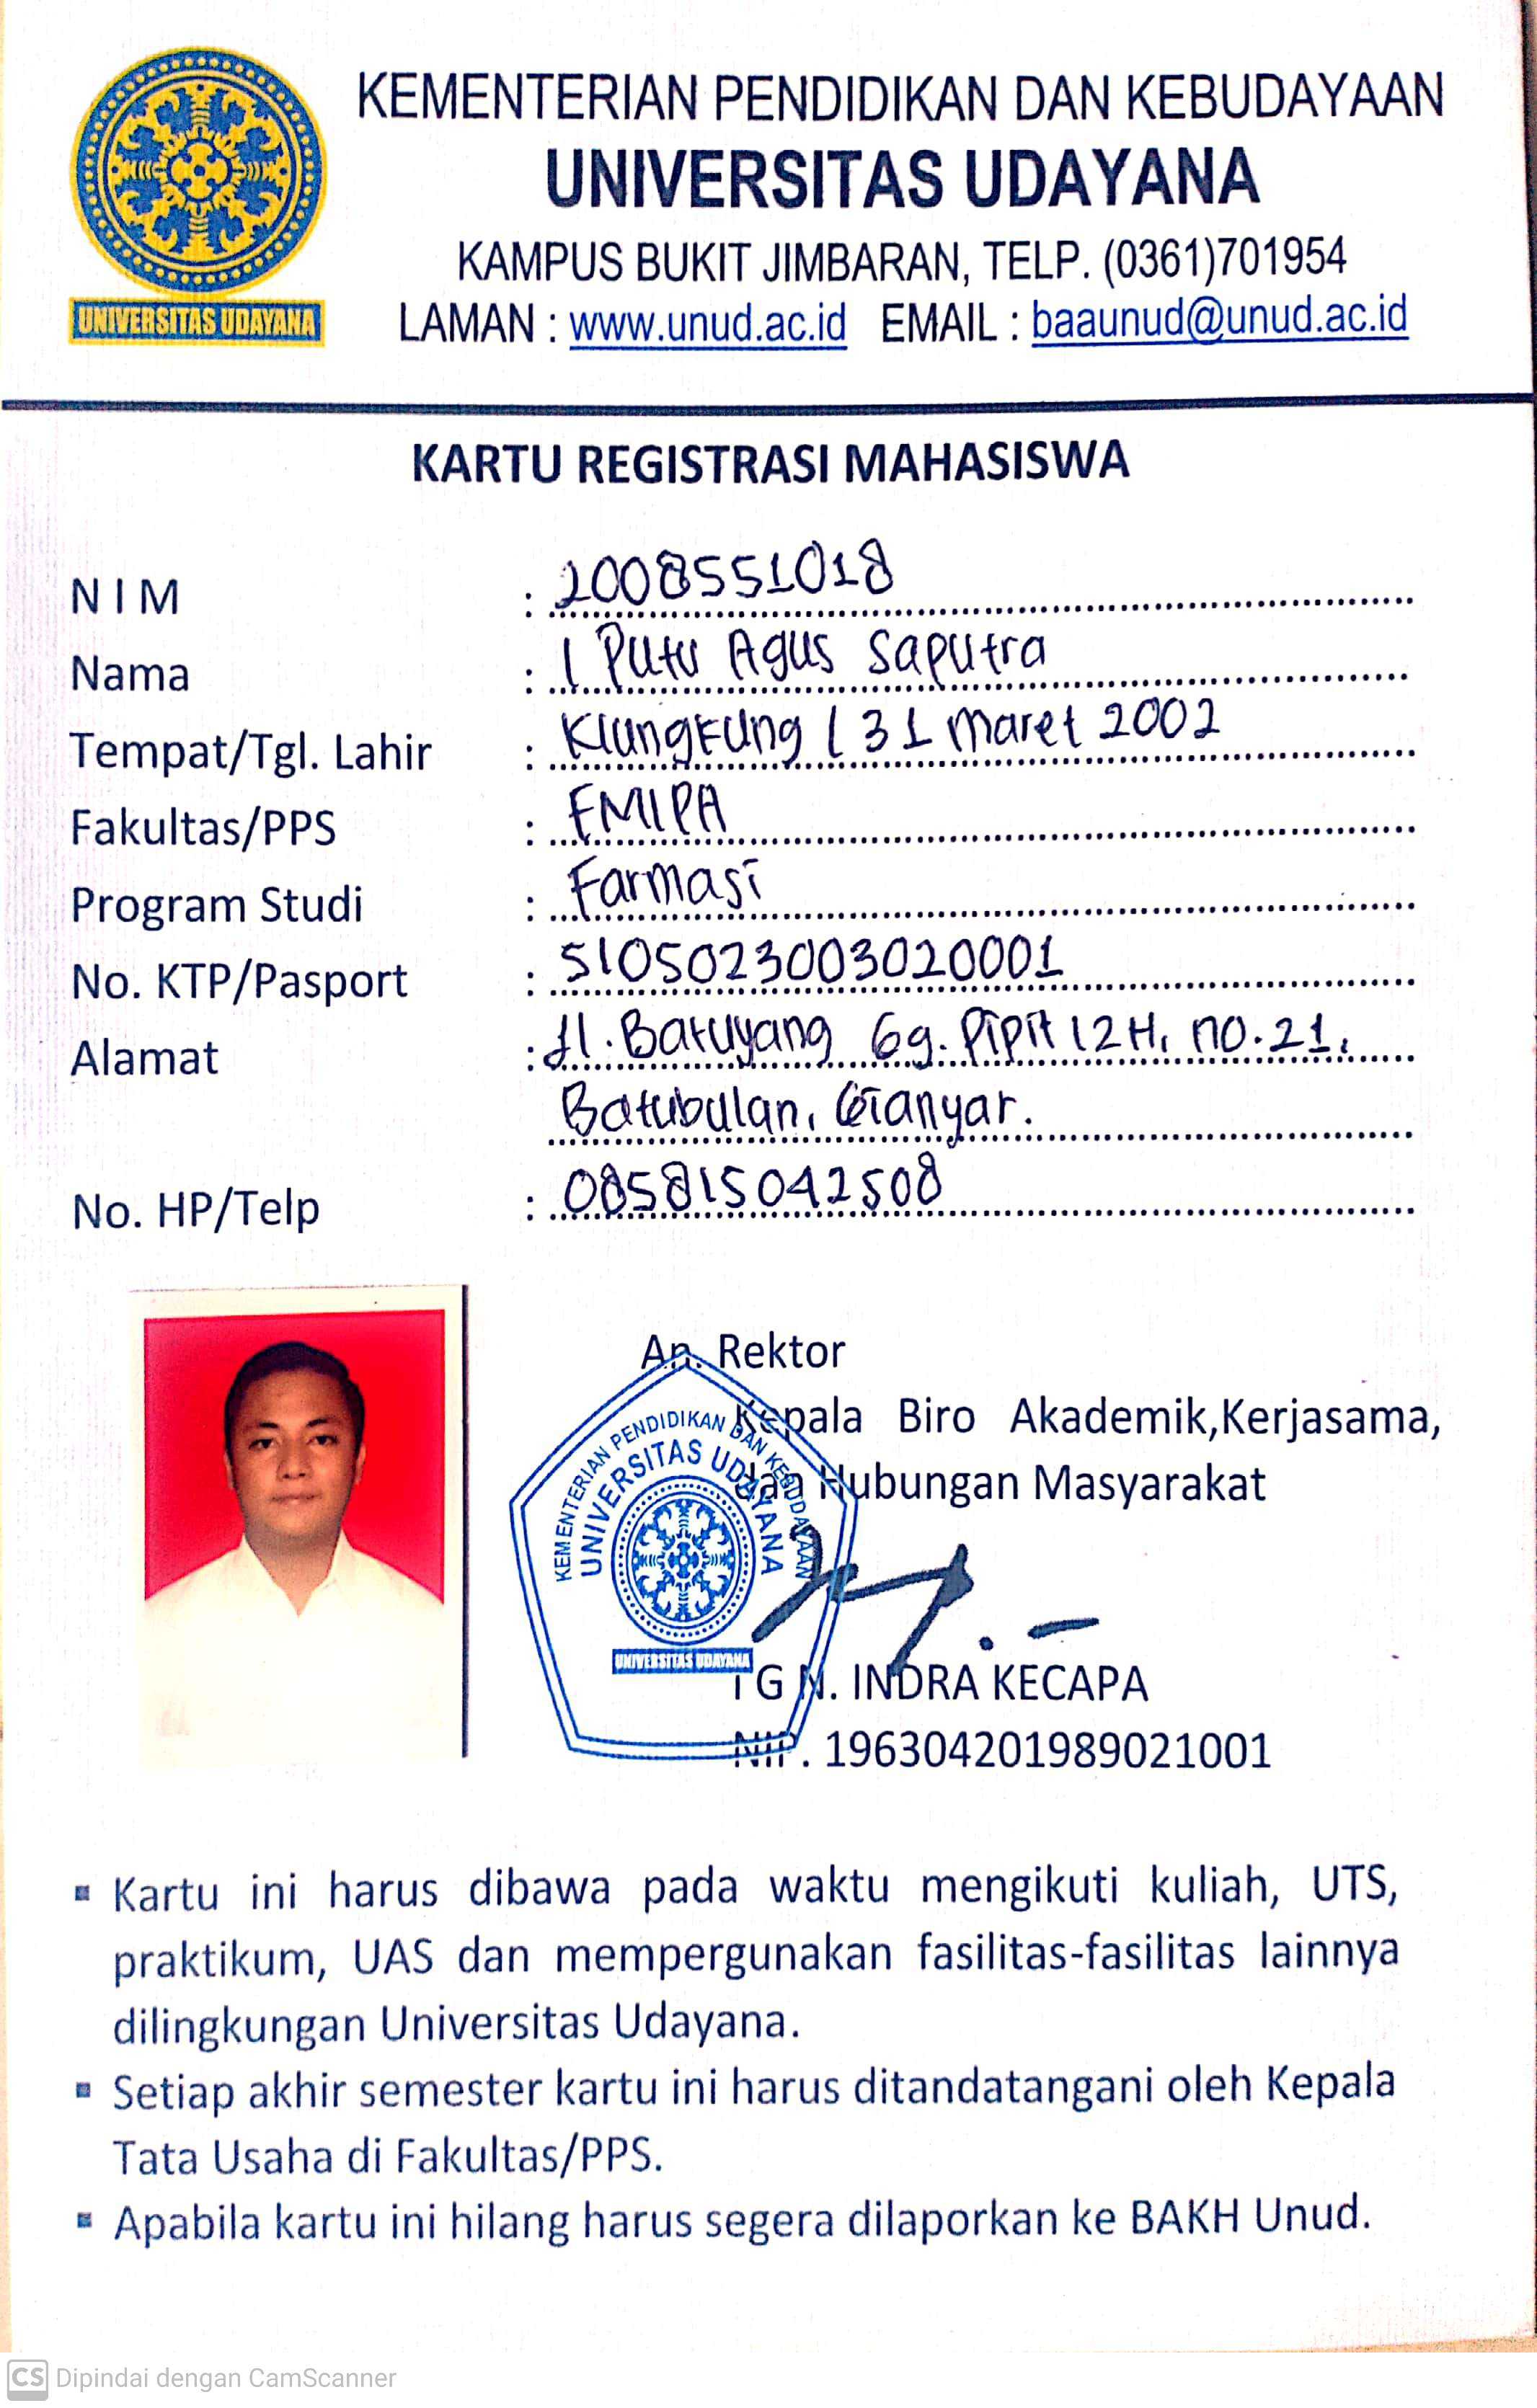 KEMENTERIAN PENDIDIKAN DAN KEBUDAYAAN
UNIVERSITAS UDAYANA
KAMPUS BUKIT JIMBARAN, TELP. (0361)701954
LAMAN : www.unud.ac.id EMAIL : baaunud@unud.ac.id
UNIVERSITAS UDAYANA
KARTU REGISTRASI MAHASISWA
NIM : 2008551018
Nama : I Putu Agus Saputra
Tempat/Tgl. Lahir : Klungkung / 31 Maret 2002
Fakultas/PPS : FMIPA
Program Studi : Farmasi
No. KTP/Pasport : 5105023003020001
Alamat : Jl. Batuyang Gg. Pipit 12H, no.21,
Batubulan, Gianyar.
No. HP/Telp : 085815042508
An. Rektor
Kepala Biro Akademik,Kerjasama,
dan Hubungan Masyarakat
KEMENTERIAN PENDIDIKAN DAN KEBUDAYAAN
UNIVERSITAS UDAYANA
UNIVERSITAS UDAYANA
I G N. INDRA KECAPA
NIP. 196304201989021001
▪ Kartu ini harus dibawa pada waktu mengikuti kuliah, UTS,
praktikum, UAS dan mempergunakan fasilitas-fasilitas lainnya
dilingkungan Universitas Udayana.
▪ Setiap akhir semester kartu ini harus ditandatangani oleh Kepala
Tata Usaha di Fakultas/PPS.
▪ Apabila kartu ini hilang harus segera dilaporkan ke BAKH Unud.
CS Dipindai dengan CamScanner